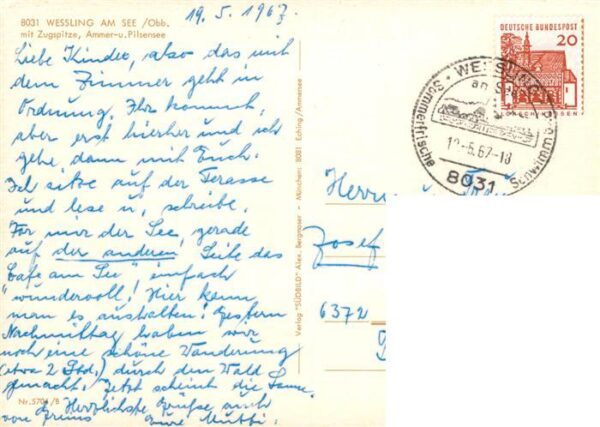 8031 WESSLING AM SEE /Obb.
mit Zugspitze, Ammer-u. Pilsensee
19. 5. 1967.
Liebe Kinder, also das mit
dem Zimmer geht in
Ordnung. Ihr kommt,
aber erst hierher und ich
gehe dann mit Euch.
Ich sitze auf der Terasse
und lese u. schreibe.
Vor mir der See, gerade
auf der anderen Seite das
"Cafe am See" einfach
wundervoll! Hier kann
man es aushalten! Gestern
Nachmittag haben wir
noch eine schöne Wanderung
(etwa 2 Std.) durch den Wald
gemacht. Jetzt scheint die Sonne.
Herzlichste Grüße, auch
von Eure Mutti.
Nr. 5704/B
Verlag "SÜDBILD" Alex. Bergmoser - München: 8081 Eching/Ammersee
DEUTSCHE BUNDESPOST
20
LORSCH HESSEN
WESSLING
am See
Sommerfrische
-5.67-18
8031
Herrn u.
Josef
6372